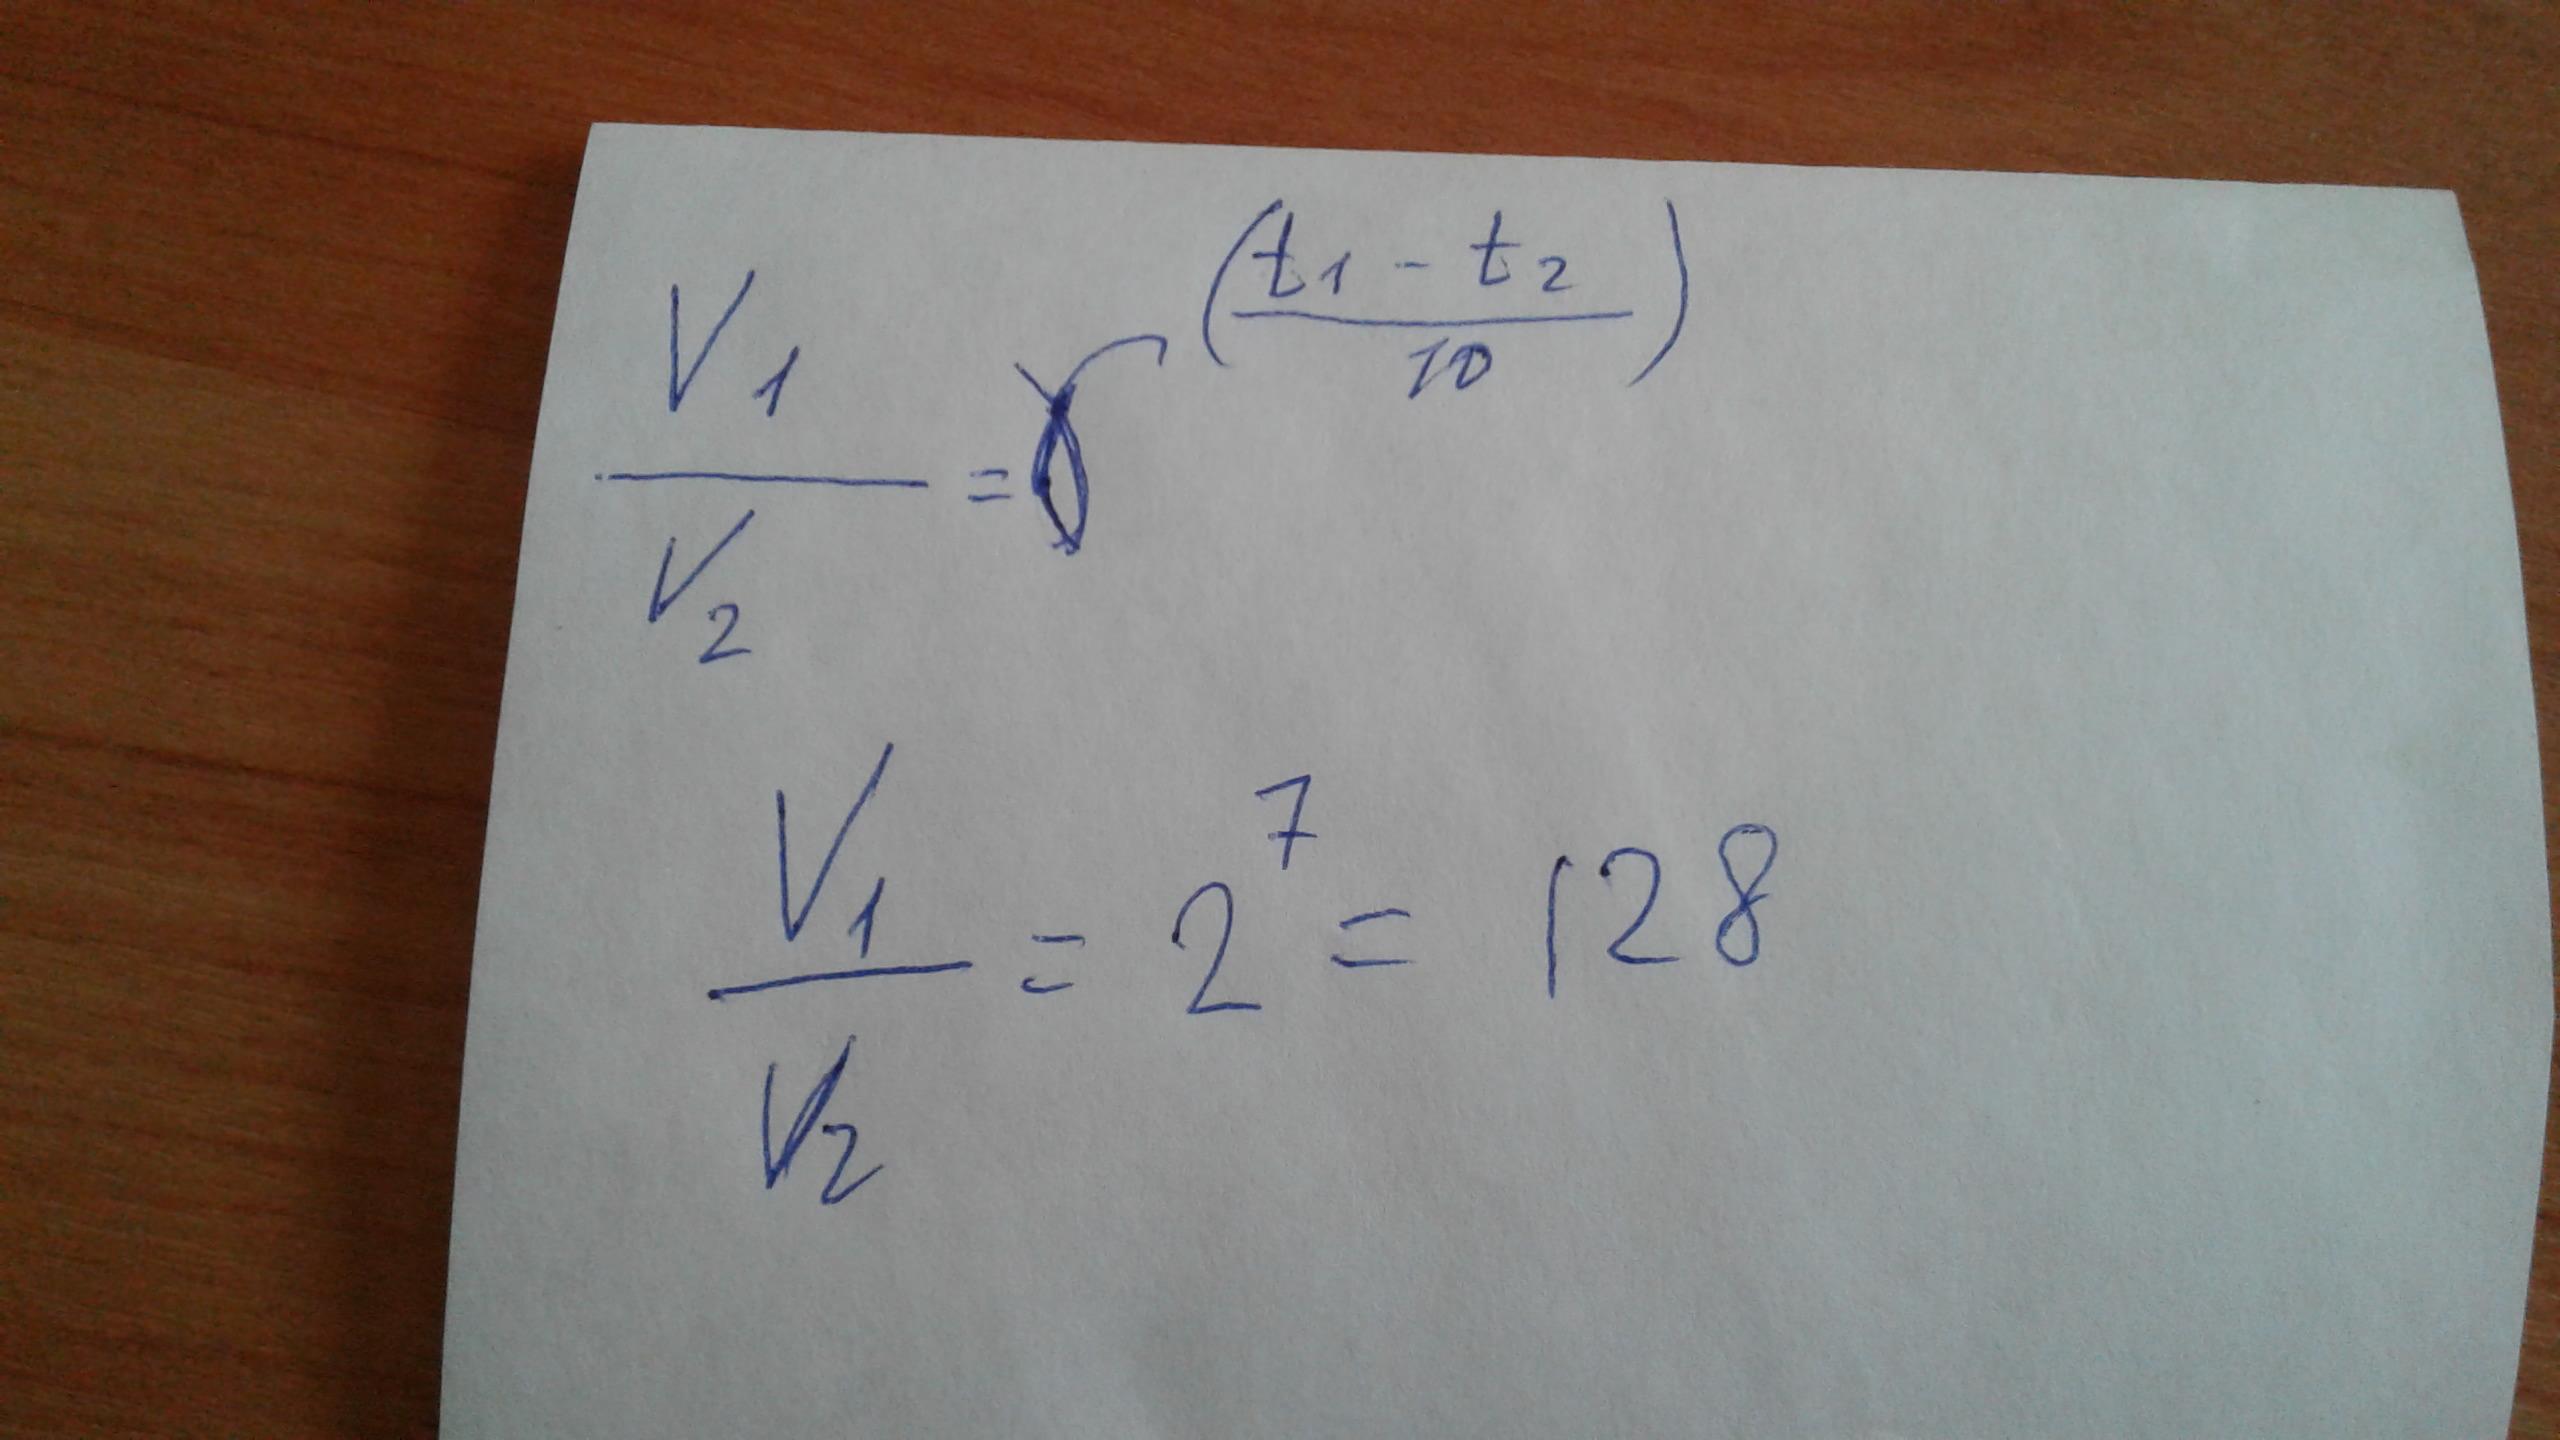 V1/V2 = γ^((t1 - t2)/10)
V1/V2 = 2^7 = 128